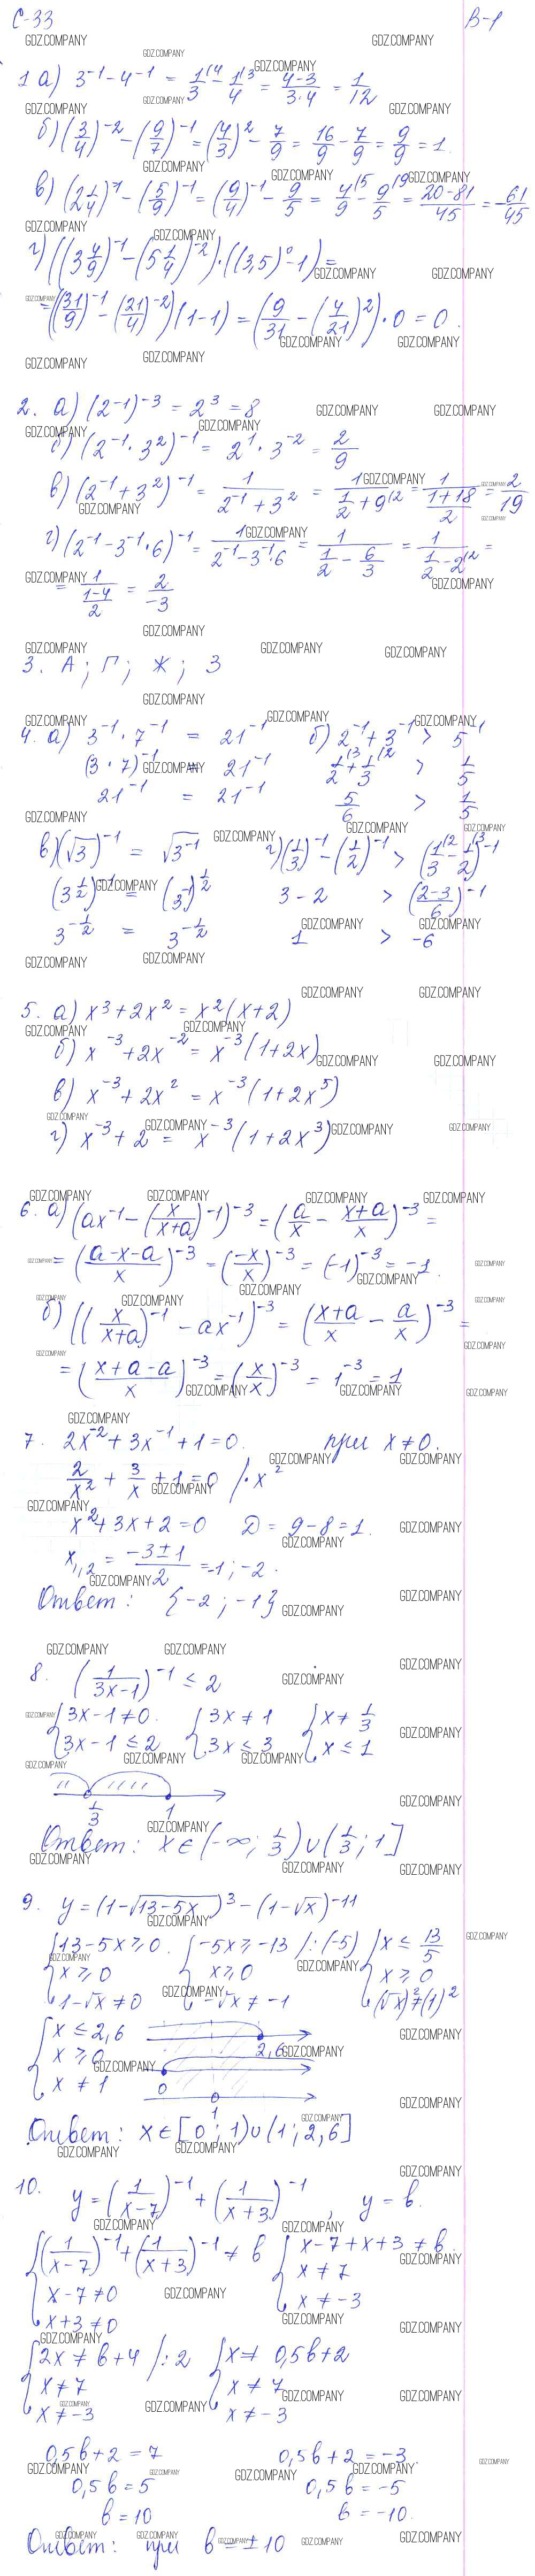 С-33 В-1
1 а) 3^-1 - 4^-1 = 1/3^(4 - 1/4^(3 = (4-3)/(3·4) = 1/12
б) (3/4)^-2 - (9/7)^-1 = (4/3)^2 - 7/9 = 16/9 - 7/9 = 9/9 = 1.
в) (2 1/4)^-1 - (5/9)^-1 = (9/4)^-1 - 9/5 = 4/9^(5 - 9/5^(9 = (20-81)/45 = -61/45
г) ((3 4/9)^-1 - (5 1/4)^-2)·((3,5)^0 - 1) =
= ((31/9)^-1 - (21/4)^-2)(1-1) = (9/31 - (4/21)^2)·0 = 0.
2. а) (2^-1)^-3 = 2^3 = 8
б) (2^-1 · 3^2)^-1 = 2^1 · 3^-2 = 2/9
в) (2^-1 + 3^2)^-1 = 1/(2^-1 + 3^2) = 1/(1/2 + 9^(2) = 1/((1+18)/2) = 2/19
г) (2^-1 - 3^-1·6)^-1 = 1/(2^-1 - 3^-1·6) = 1/(1/2 - 6/3) = 1/(1/2 - 2^(2) =
= 1/((1-4)/2) = 2/-3
3. А; Г; Ж; З
4. а) 3^-1 · 7^-1 = 21^-1 б) 2^-1 + 3^-1 > 5^-1
(3·7)^-1 = 21^-1 1/2^(3 + 1/3^(2 > 1/5
21^-1 = 21^-1 5/6 > 1/5
в) (√3)^-1 = √3^-1 г) (1/3)^-1 - (1/2)^-1 > (1/3^(2 - 1/2^(3)^-1
(3^1/2)^-1 = (3^-1)^1/2 3 - 2 > ((2-3)/6)^-1
3^-1/2 = 3^-1/2 1 > -6
5. а) x^3 + 2x^2 = x^2(x+2)
б) x^-3 + 2x^-2 = x^-3(1+2x)
в) x^-3 + 2x^2 = x^-3(1+2x^5)
г) x^-3 + 2 = x^-3(1+2x^3)
6. а) (ax^-1 - (x/(x+a))^-1)^-3 = (a/x - (x+a)/x)^-3 =
= ((a-x-a)/x)^-3 = (-x/x)^-3 = (-1)^-3 = -1.
б) ((x/(x+a))^-1 - ax^-1)^-3 = ((x+a)/x - a/x)^-3 =
= ((x+a-a)/x)^-3 = (x/x)^-3 = 1^-3 = 1
7. 2x^-2 + 3x^-1 + 1 = 0. при x ≠ 0.
2/x^2 + 3/x + 1 = 0 /·x^2
x^2 + 3x + 2 = 0 D = 9-8 = 1.
x1,2 = (-3±1)/2 = -1; -2.
Ответ: {-2; -1}
8. (1/(3x-1))^-1 ≤ 2
{3x-1≠0. {3x≠1 {x≠1/3
{3x-1≤2 {3x≤3 {x≤1
1/3 1
Ответ: x∈(-∞; 1/3)∪(1/3; 1]
9. y = (1-√(13-5x))^3 - (1-√x)^-11
{13-5x≥0. {-5x≥-13 /:(-5) {x≤13/5
x≥0 x≥0 x≥0
1-√x≠0 -√x≠-1 (√x)^2≠(1)^2
{x≤2,6
x≥0 2,6
x≠1 0
1
Ответ: x∈[0; 1)∪(1; 2,6]
10. y = (1/(x-7))^-1 + (1/(x+3))^-1, y = b.
{(1/(x-7))^-1 + (1/(x+3))^-1 ≠ b {x-7+x+3≠b.
x-7≠0 x≠7
x+3≠0 x≠-3
{2x≠b+4 /:2 {x≠0,5b+2
x≠7 x≠7
x≠-3 x≠-3
0,5b+2=7 0,5b+2=-3.
0,5b=5 0,5b=-5
b=10 b=-10.
Ответ: при b=±10
GDZ.COMPANY